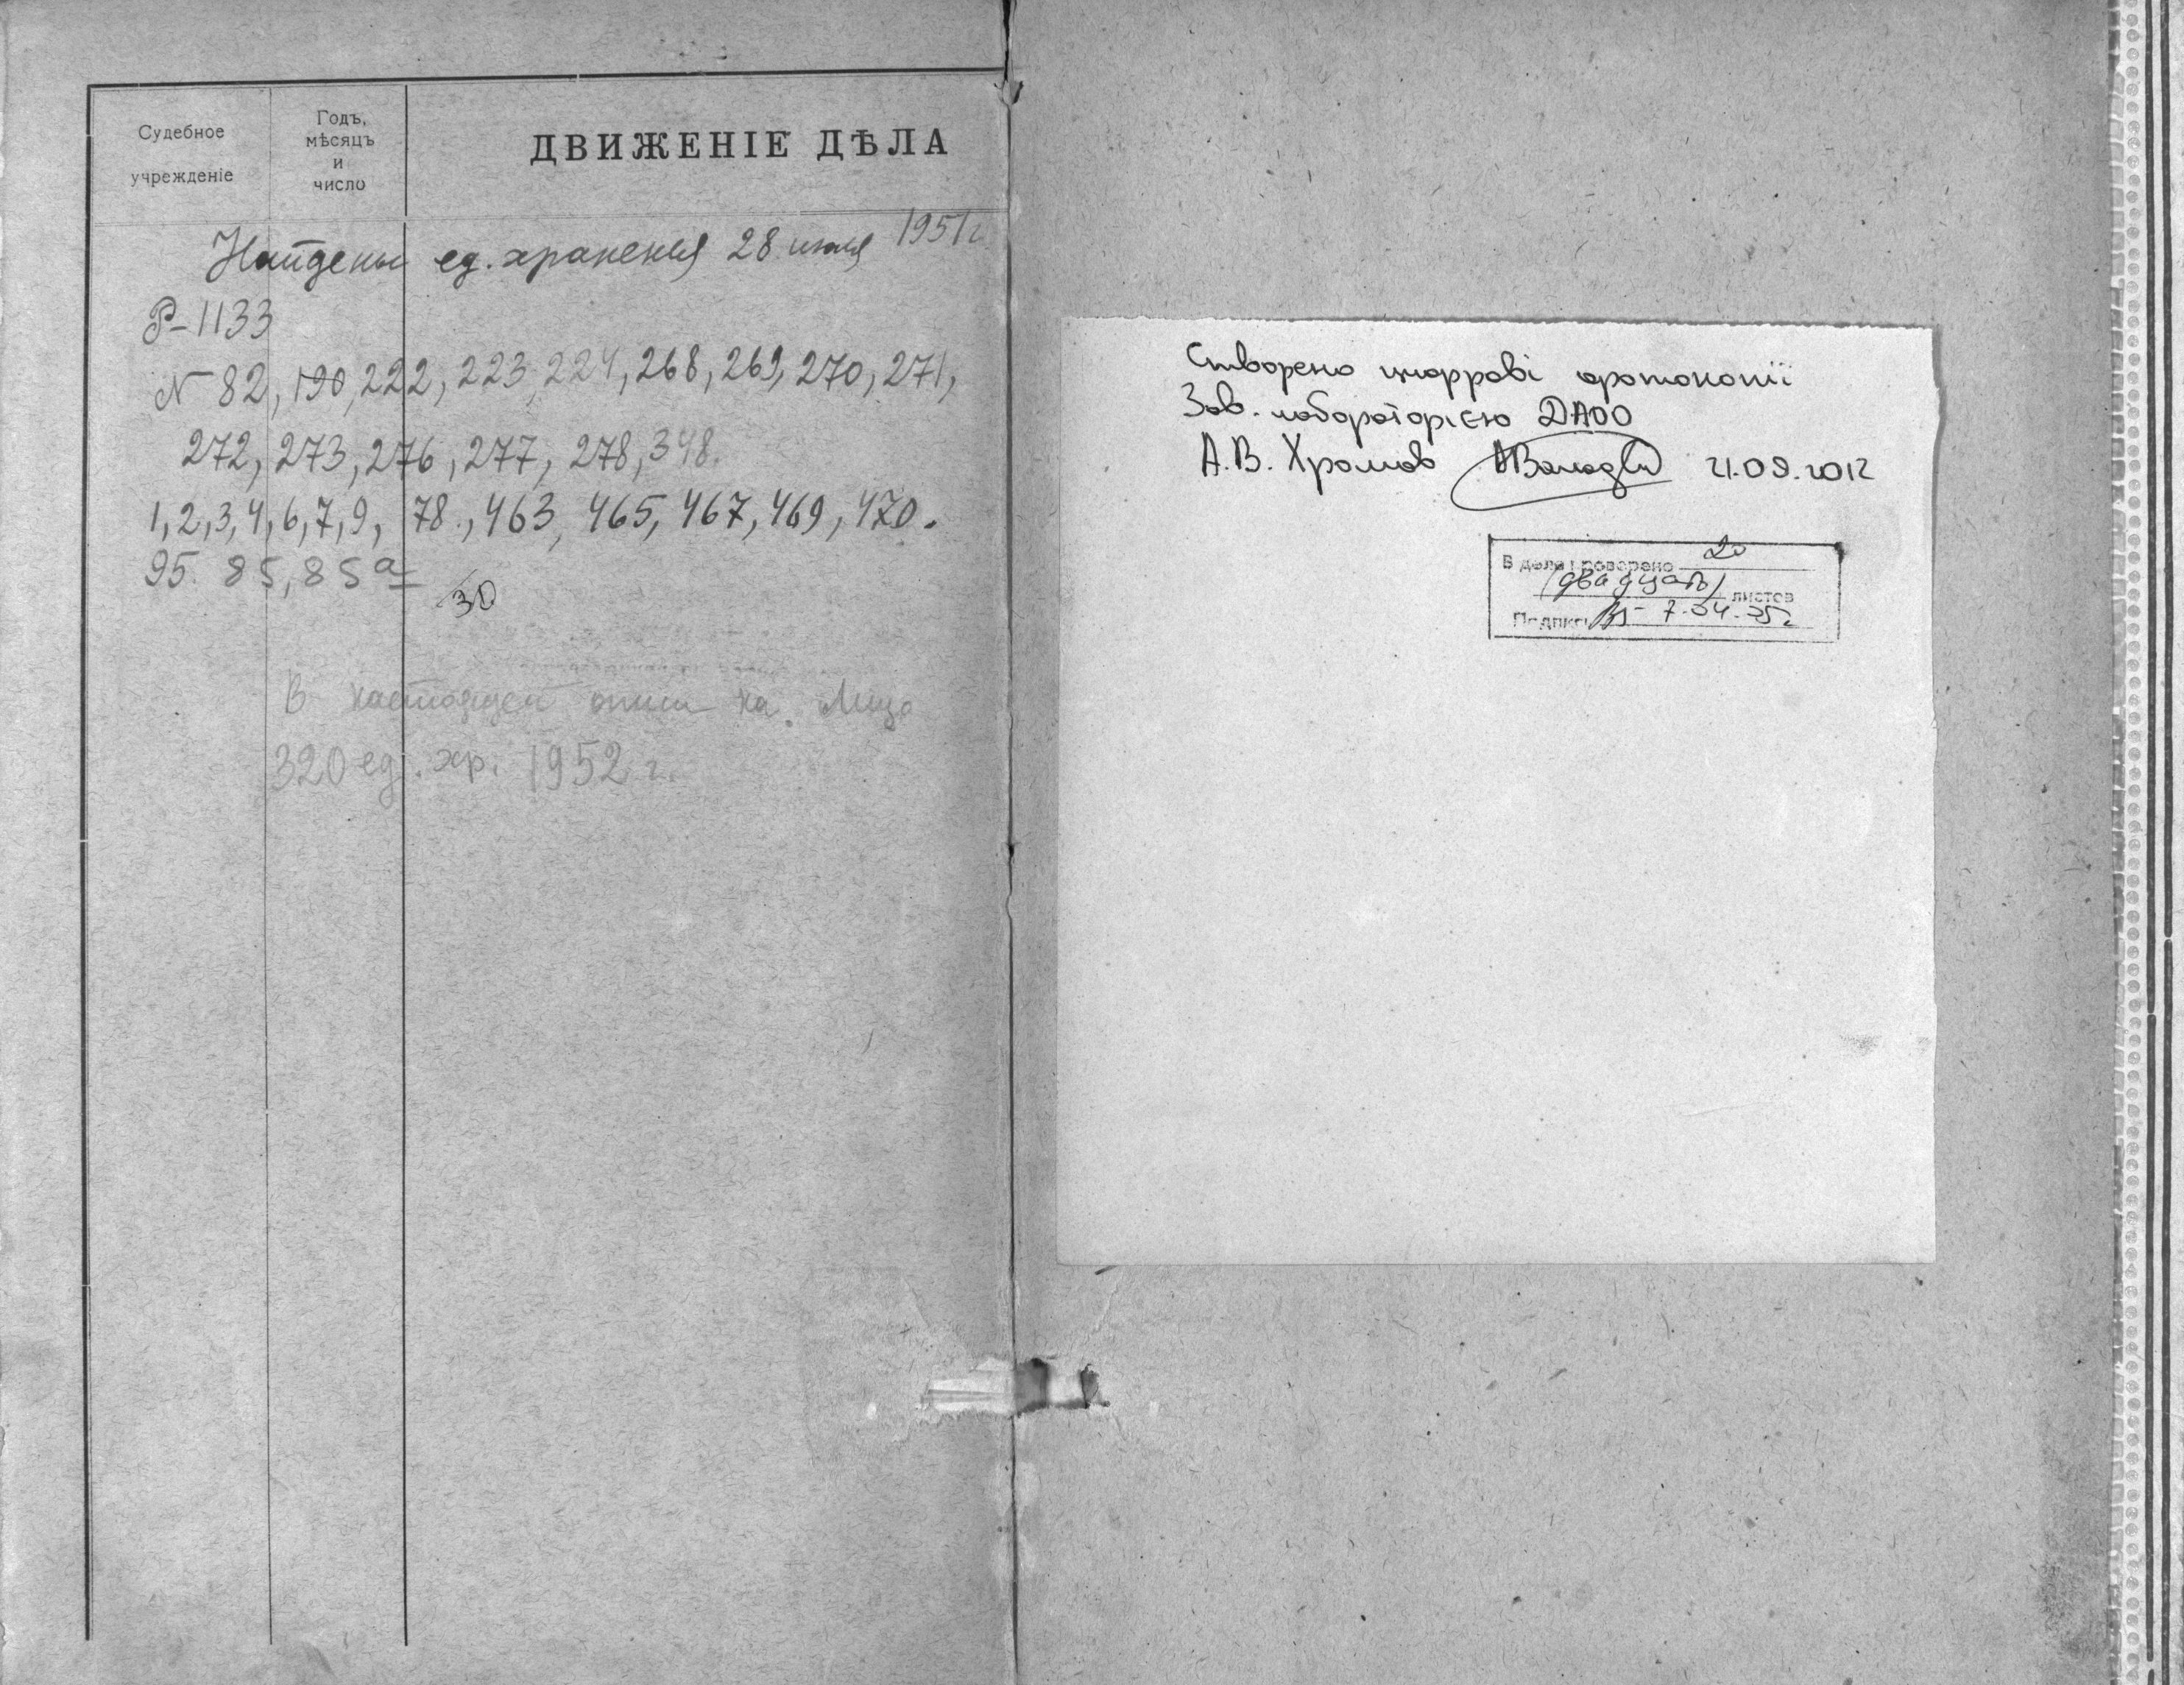 Судебное
учрежденіе
Годъ,
мѣсяцъ
и
число
ДВИЖЕНІЕ ДѢЛА
Найдены ед. хранения 28 июля 1951 г.
Р-1133
N 82, 190, 222, 223, 224, 268, 269, 270, 271,
272, 273, 276, 277, 278, 348.
1, 2, 3, 4, 6, 7, 9, 78., 463, 465, 467, 469, 470.
95. 85, 85а
30
В настоящей описи на лицо
320 ед. хр. 1952 г.
Створено цифрові фотокопії
Зав. лабораторією ДАОО
А.В. Хромов 21.09.2012
В деле проверено 20
(двадцать) листов
Подпись 7-04-